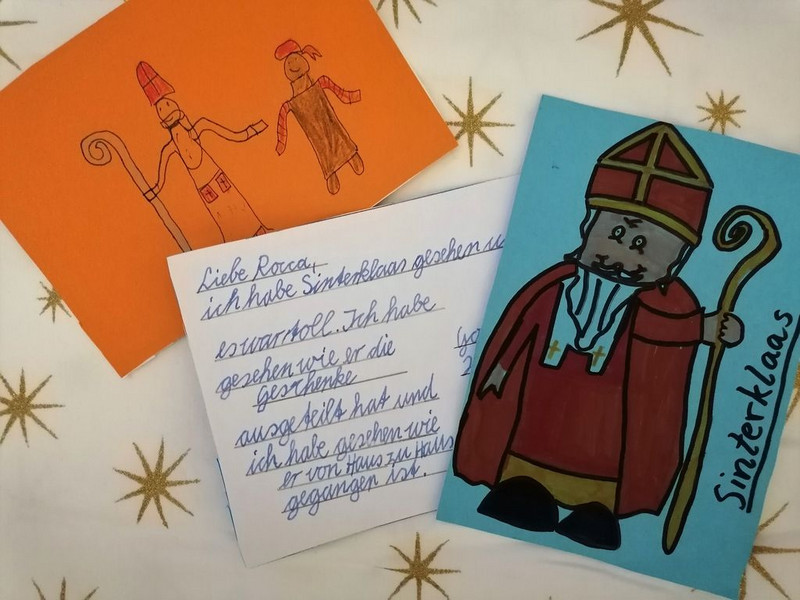 Liebe Rocca,
ich habe Sinterklaas gesehen
es war toll. Ich habe
gesehen wie er die
Geschenke
ausgeteilt hat und
ich habe gesehen wie
er von Haus zu Haus
gegangen ist.
Sinterklaas